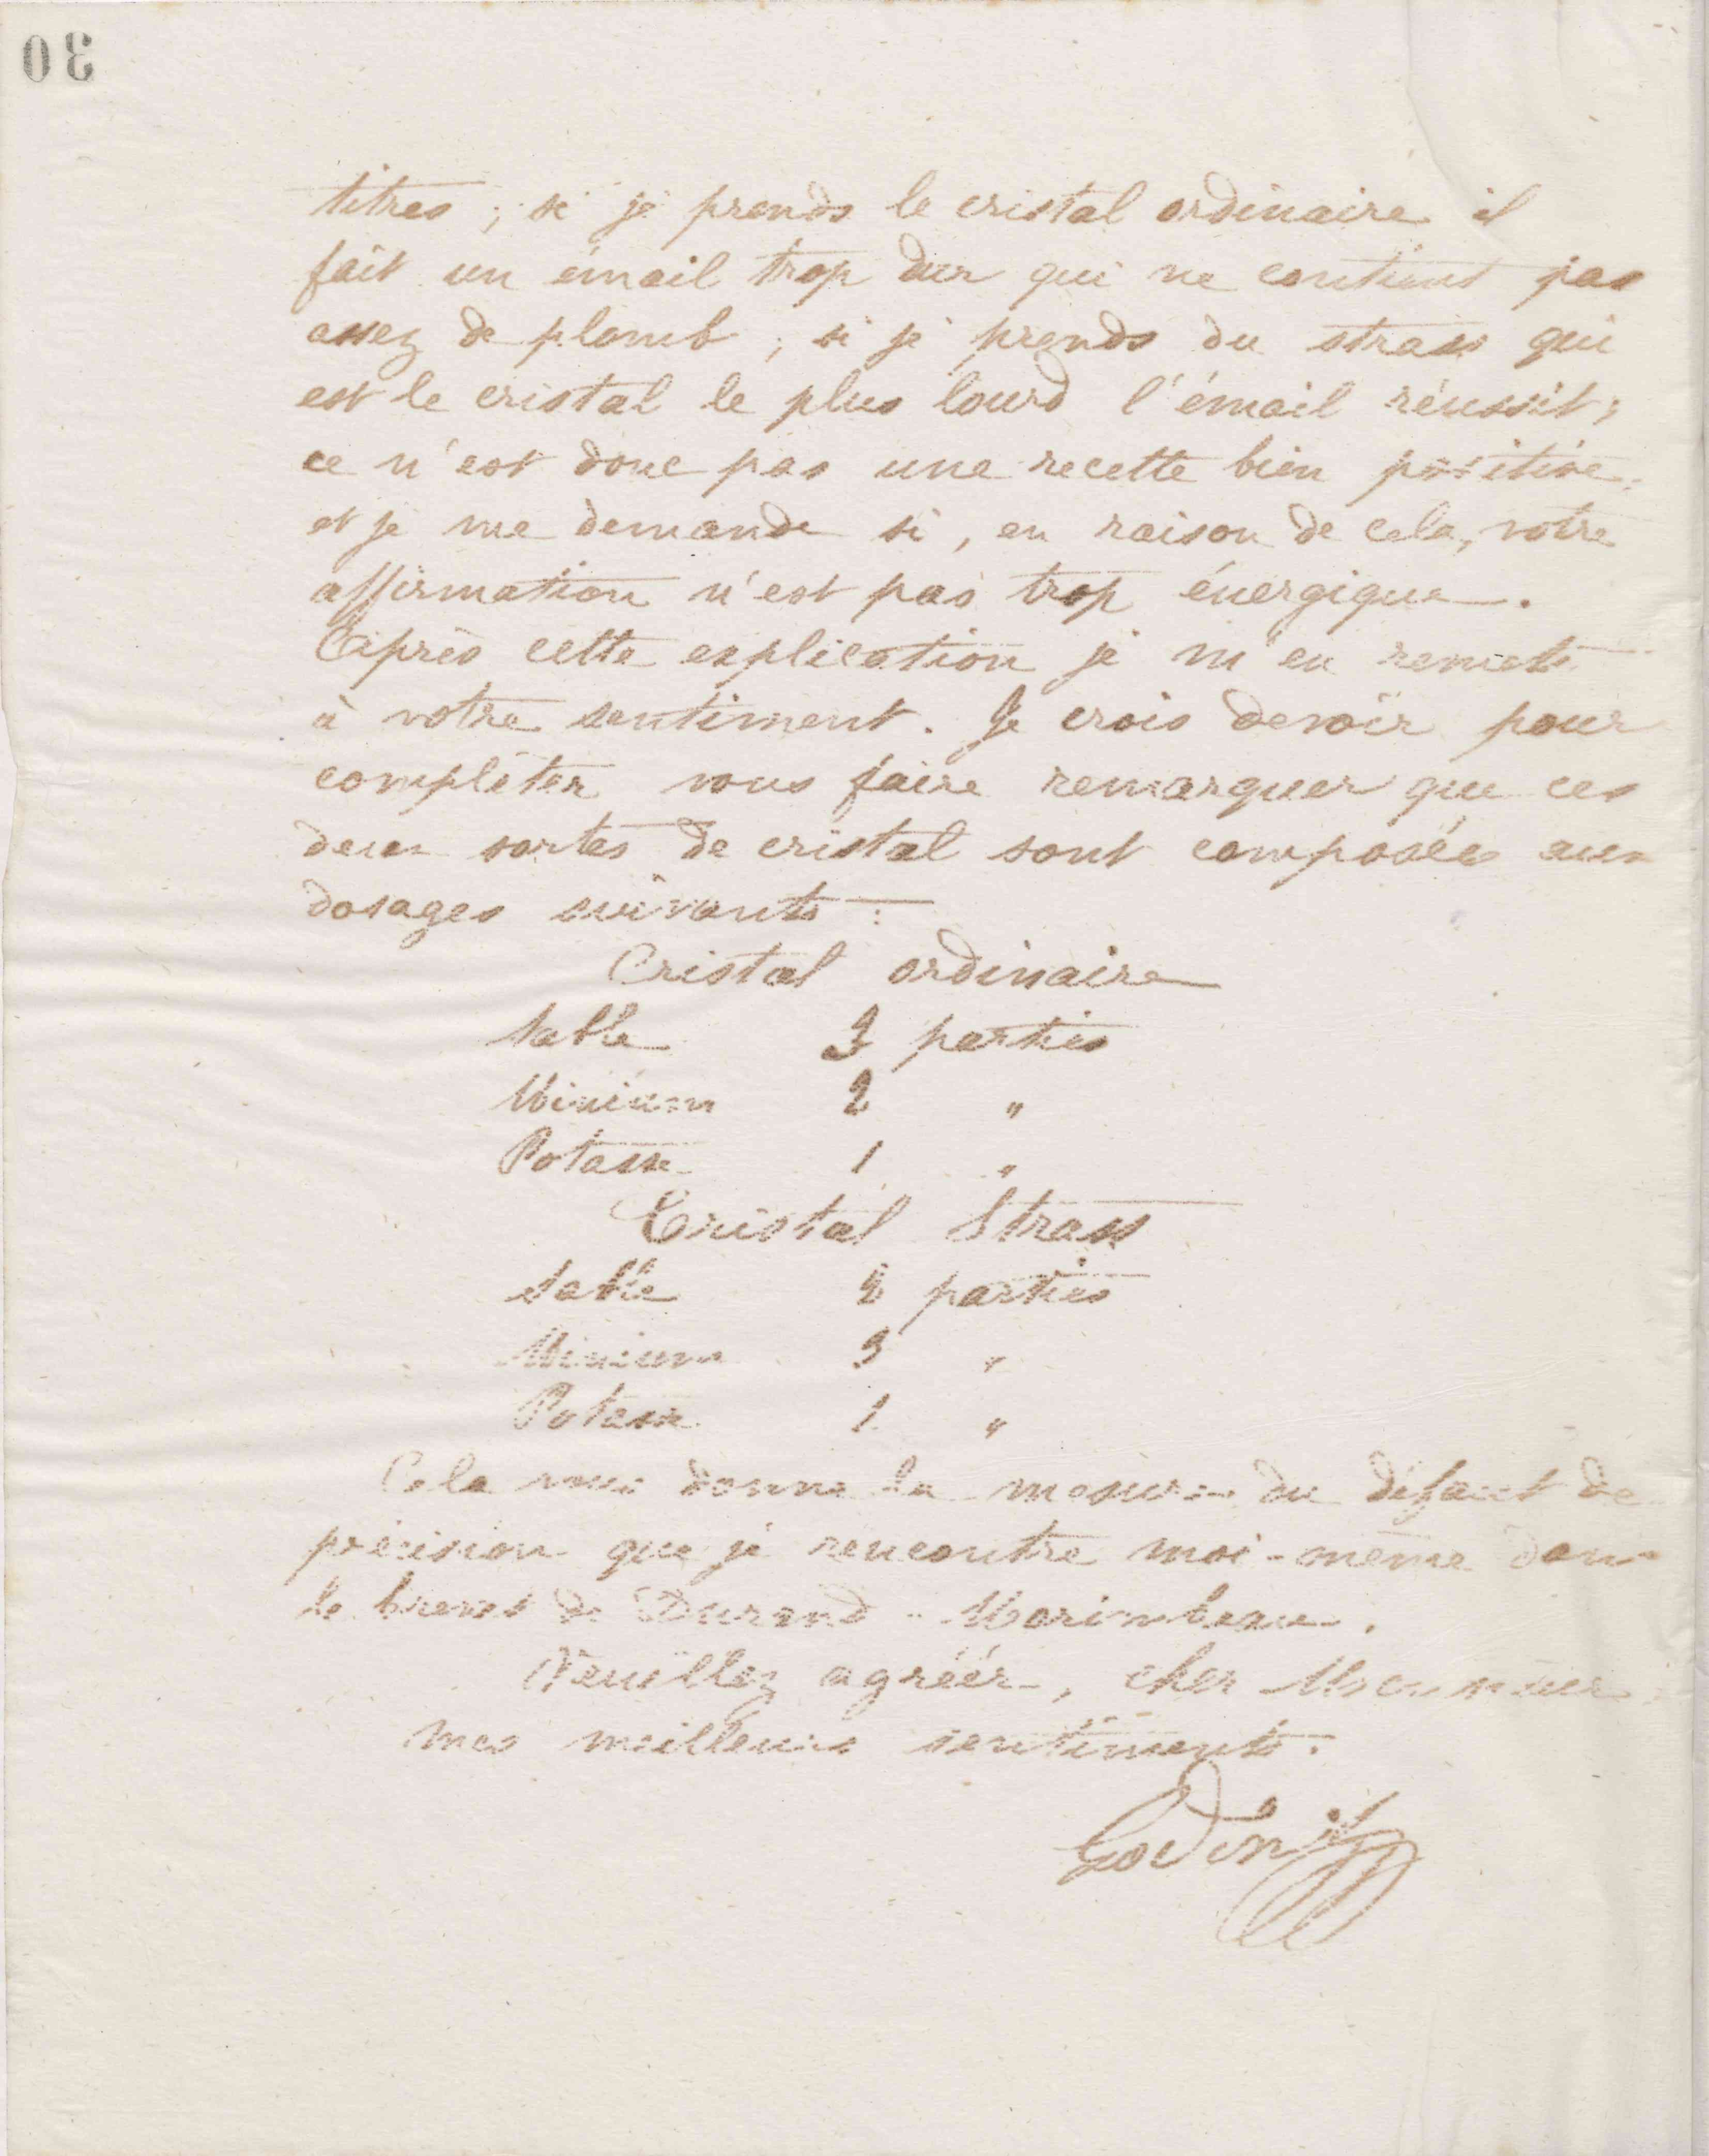 30
titres ; si je prends le cristal ordinaire il
fait un émail trop dur qui ne contient pas
assez de plomb ; si je prends du strass qui
est le cristal le plus lourd l'émail réussit ;
ce n'est donc pas une recette bien positive,
et je me demande si, en raison de cela, votre
affirmation n'est pas trop énergique.
Après cette explication je m'en remets
à votre sentiment. Je crois devoir pour
compléter vous faire remarquer que ces
deux sortes de cristal sont composées aux
dosages suivants :
Cristal ordinaire
Sable 3 parties
Minium 2 "
Potasse 1 "
Cristal Strass
Sable 2 parties
Minium 3 "
Potasse 1 "
Cela vous donne la mesure du défaut de
précision que je rencontre moi-même dans
le brevet de Durand-
Veuillez agréer, cher Monsieur,
mes meilleurs sentiments.
Godin